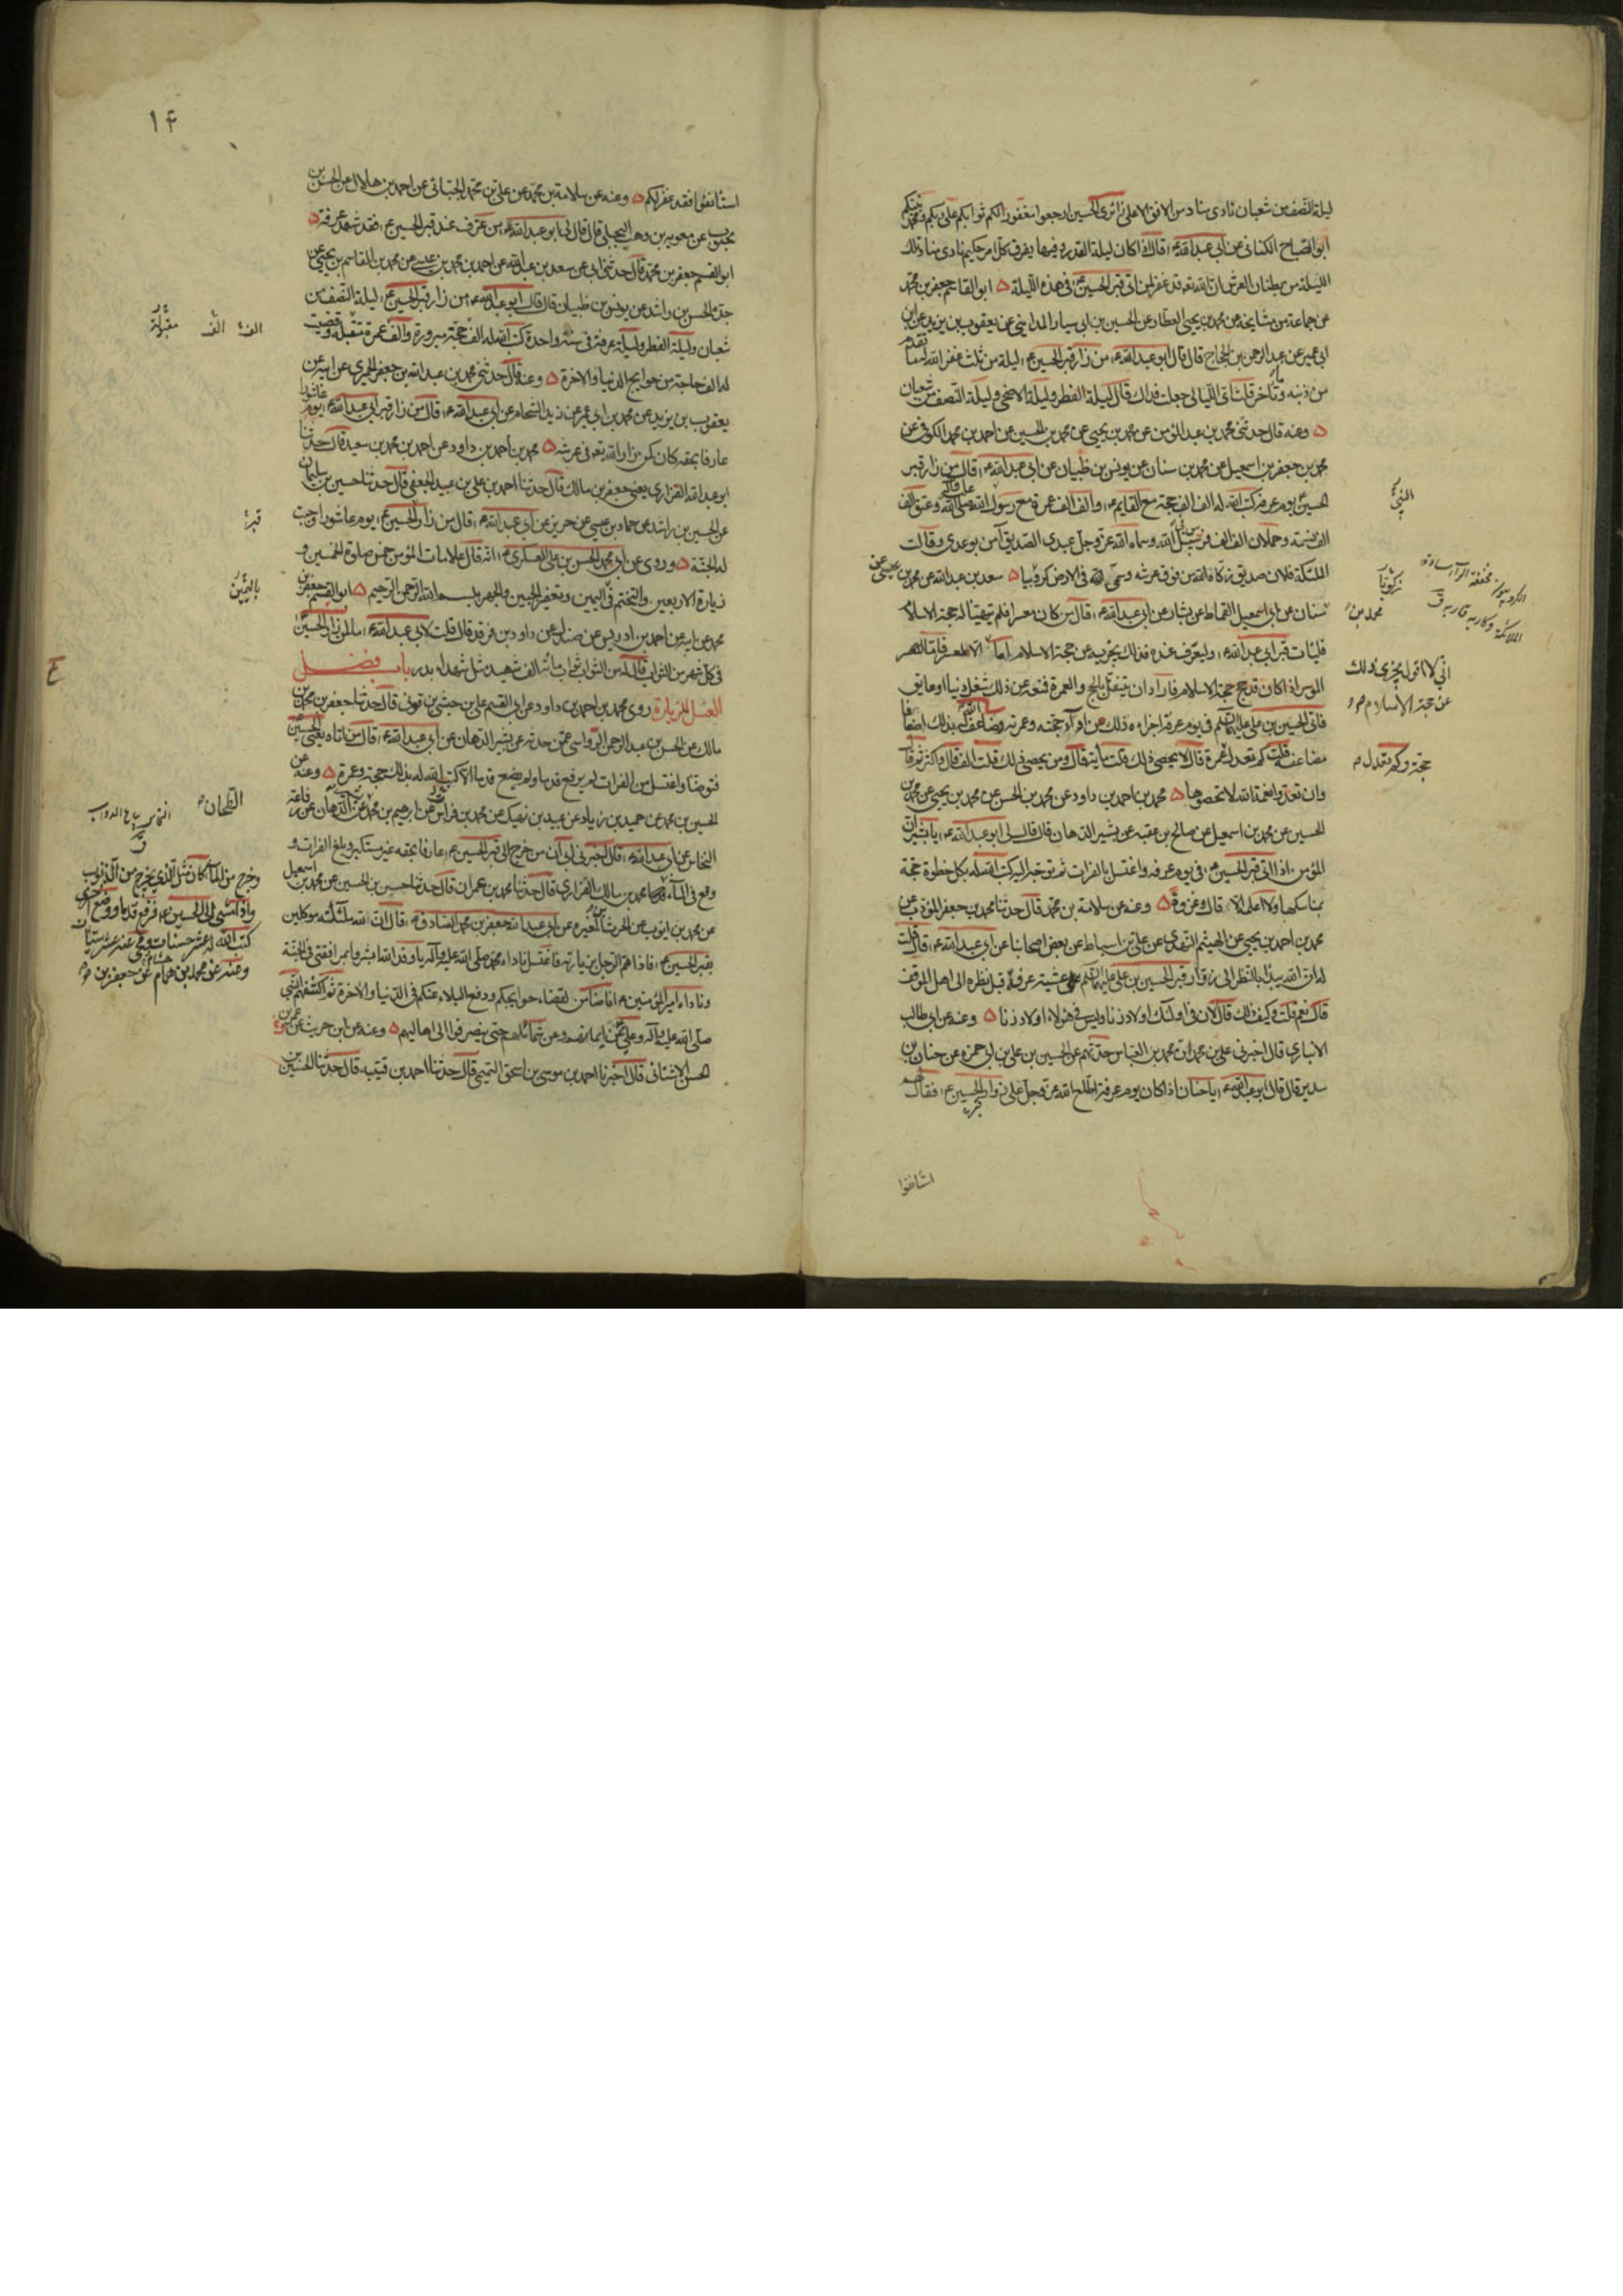 ليلة النصف من شعبان نادى مناد من الافق الاعلى زائري الحسين ارجعوا مغفورا لكم ثوابكم على ربكم ومحمد نبيكم
ابو الصباح الكناني عن ابي عبد الله ع قال اذا كان ليلة القدر وفيها يفرق كل امر حكيم نادى مناد تلك
الليلة من بطنان العرش ان الله تعه قد غفر لمن اتى قبر الحسين ع في هذه الليلة ۵ ابو القاسم جعفر بن محمد
عن جماعة من مشايخه عن محمد بن يحيى العطار عن الحسين بن ابي سيار المدايني عن يعقوب بن يزيد عن ابن
ابي عمير عن عبد الرحمن بن الحجاج قال قال ابو عبد الله ع من زار قبر الحسين ع ليلة من ثلث غفر الله له ما تقدم
من ذنبه وما تاخر قلت اي الليالي جعلت فداك قال ليلة الفطر وليلة الاضحى وليلة النصف من شعبان
۵ وعنه قال حدثني محمد بن عبد المؤمن عن محمد بن يحيى عن محمد بن الحسين عن احمد بن محمد الكوفي عن
محمد بن جعفر بن اسمعيل عن محمد بن سنان عن يونس بن ظبيان عن ابي عبد الله ع قال من زار قبر
الحسين ع يوم عرفة كتب الله له الف الف حجة مع القايم ع والف الف عمرة مع رسول الله صلى الله عليه واله وعتق الف
الف نسمة وحملان الف الف فرس في سبيل الله وسماه الله عز وجل عبدي الصديق آمن بوعدي وقالت
الملئكة فلان صديق زكاه الله من فوق عرشه وسمي في الارض كروبيا ۵ سعد بن عبد الله عن محمد بن عيسى عن
سنان عن ابي اسمعيل القماط عن بشار عن ابي عبد الله ع قال من كان معسرا فلم يتهيا له حجة الاسلام
فليات قبر ابي عبد الله ع وليعرف عنده فذلك يجزيه عن حجة الاسلام اما الا للمعسر فاما الموسر
المؤسر اذا كان قد حج حجة الاسلام فاراد ان يتنفل بالحج والعمرة فمنعه عن ذلك شغل دنيا او عايق
فاتى الحسين بن علي عليهما السلم في يوم عرفة اجزاءه ذلك من اداء حجته وعمرته وضاعف الله له بذلك اضعافا
مضاعفة قلت كم تعدل عمرة قال لا يحصى ذلك قلت مأية قال ومن يحصي ذلك قلت الف قال واكثر ثم قال
وان تعدوا نعمة الله لا تحصوها ۵ محمد بن احمد بن داود عن محمد بن الحسن عن محمد بن يحيى عن محمد بن
الحسين عن محمد بن اسمعيل عن صالح بن عقبه عن بشير الدهان قال قال لي ابو عبد الله ع يا بشير ان
المؤمن اذا اتى قبر الحسين ع في يوم عرفه واغتسل بالفرات ثم توجه اليه كتب الله له بكل خطوة حجة
بمناسكها ولا اعلمه الا قال وغزوة ۵ وعنه عن سلامة بن محمد قال حدثنا محمد بن جعفر المؤدب عن
محمد بن احمد بن يحيى عن الهيثم النهدي عن علي بن اسباط عن بعض اصحابنا عن ابي عبد الله ع قال قلت
له ان الله يبدا بالنظر الى زوار قبر الحسين بن علي عليهما السلم عشية عرفة قبل نظره الى اهل الموقف
قال نعم قلت وكيف ذلك قال لان في اولئك اولاد زنا وليس في هؤلاء اولاد زنا ۵ وعنه عن ابي طالب
الانباري قال اخبرني علي بن محمد ان محمد بن العباس حدثهم عن الحسين بن علي بن ابي حمزه عن حنان بن
سدير قال قال ابو عبد الله ع يا حنان اذا كان يوم عرفة اطلع الله عز وجل على زوار قبر الحسين ع فقال لهم
استأنفوا
النبي
زكريا
محمد بن
اني لا اقول يجزئ ذلك
عن حجة الاسلام
حجة وكم تعدل
١٤
استأنفوا فقد غفر لكم ۵ وعنه عن سلامة بن محمد عن علي بن محمد الجبائي عن احمد بن هلال عن الحسن بن
محبوب عن معوية بن وهب البجلي قال قال لي ابو عبد الله ع من عرف عند قبر الحسين ع فقد شهد عرفة ۵
ابو القسم جعفر بن محمد قال حدثني ابي عن سعد بن عبد الله عن احمد بن محمد بن عيسى عن محمد بن القاسم بن يحيى عن
جده الحسن بن راشد عن يونس بن ظبيان قال قال ابو عبد الله ع من زار قبر الحسين ع ليلة النصف من
شعبان وليلة الفطر وليلة عرفة في سنة واحدة كتب الله له الف حجة مبرورة والف عمرة متقبلة وقضيت
له الف حاجة من حوايج الدنيا والاخرة ۵ وعنه قال حدثني محمد بن عبد الله بن جعفر الحميري عن ابيه عن
يعقوب بن يزيد عن محمد بن ابي عمير عن زيد الشحام عن ابي عبد الله ع قال من زار قبر ابي عبد الله ع يوم عاشورا
عارفا بحقه كان كمن زار الله تعه في عرشه ۵ محمد بن احمد بن داود عن احمد بن محمد بن سعيد قال حدثنا
ابو عبد الله الفزاري يعني جعفر بن مالك قال حدثنا احمد بن علي بن عبيد الجعفي قال حدثنا حسين بن سليمان
عن الحسين بن راشد عن حماد بن عيسى عن حريز عن ابي عبد الله ع قال من زار الحسين ع يوم عاشورا وجبت
له الجنة ۵ وروى عن ابي محمد الحسن بن علي العسكري ع انه قال علامات المؤمن خمس صلوة الخمسين و
زيارة الاربعين والتختم في اليمين وتعفير الجبين والجهر ببسم الله الرحمن الرحيم ۵ ابو القسم جعفر بن
محمد عن ابيه عن احمد بن ادريس عن صندل عن داود بن فرقد قال قلت لابي عبد الله ع ما لمن زار الحسين
في كل شهر من الثواب قال له من الثواب ثواب مائة الف شهيد مثل شهداء بدر باب فضل
الغسل للزيارة روى محمد بن احمد بن داود عن ابي القسم علي بن حبشي بن قوني قال حدثنا جعفر بن محمد بن
مالك عن الحسن بن عبد الرحمن الرواسي عمن حدثه عن بشير الدهان عن ابي عبد الله ع قال من اتاه يعني الحسين
فتوضأ واغتسل من الفرات لم يرفع قدما ولم يضع قدما الا كتب الله له بذلك حجة وعمرة ۵ وعنه عن
الحسين بن محمد عن حميد بن زياد عن عبيد بن نهيك عن محمد بن فراس عن ابرهيم بن محمد عن الدهان عن رفاعة
النخاس عن ابي عبد الله ع قال اخبرني ابي ان من خرج الى قبر الحسين ع عارفا بحقه غير مستكبر وبلغ الفرات و
وقع في الماء محمد بن مالك الفزاري قال حدثنا محمد بن عمران قال حدثنا حسين بن الحسين عن محمد بن اسمعيل
عن محمد بن ايوب عن الحرث المغيره عن ابي عبد الله جعفر بن محمد الصادق ع قال ان لله ملئكة موكلين
بقبر الحسين ع فاذا هم الرجل بزيارته فاغتسل ناداه محمد صلى الله عليه وآله يا وفد الله ابشروا بمرافقتي في الجنة
وناداه امير المؤمنين ع انا ضامن لقضاء حوايجكم ودفع البلاء عنكم في الدنيا والاخرة ثم اكتنفهم النبي
صلى الله عليه وآله وعلي ع عن ايمانهم وعن شمائلهم حتى ينصرفوا الى اهاليهم ۵ وعنه عن ابن حريث عن
الحسن الاشناني قال اخبرنا احمد بن موسى بن اسحق التميمي قال حدثنا احمد بن قتيبه قال حدثنا الحسين بن
الف الف مقبولة
قبر
باليمين
الطحان
وخرج من الماء كان مثل الذي يخرج من الذنوب
واذا مشى الى الحسين ع فرفع قدما ووضع اخرى
كتب الله له عشر حسنات ومحى عنه عشر سيئات
وعنه عن محمد بن همام عن جعفر بن